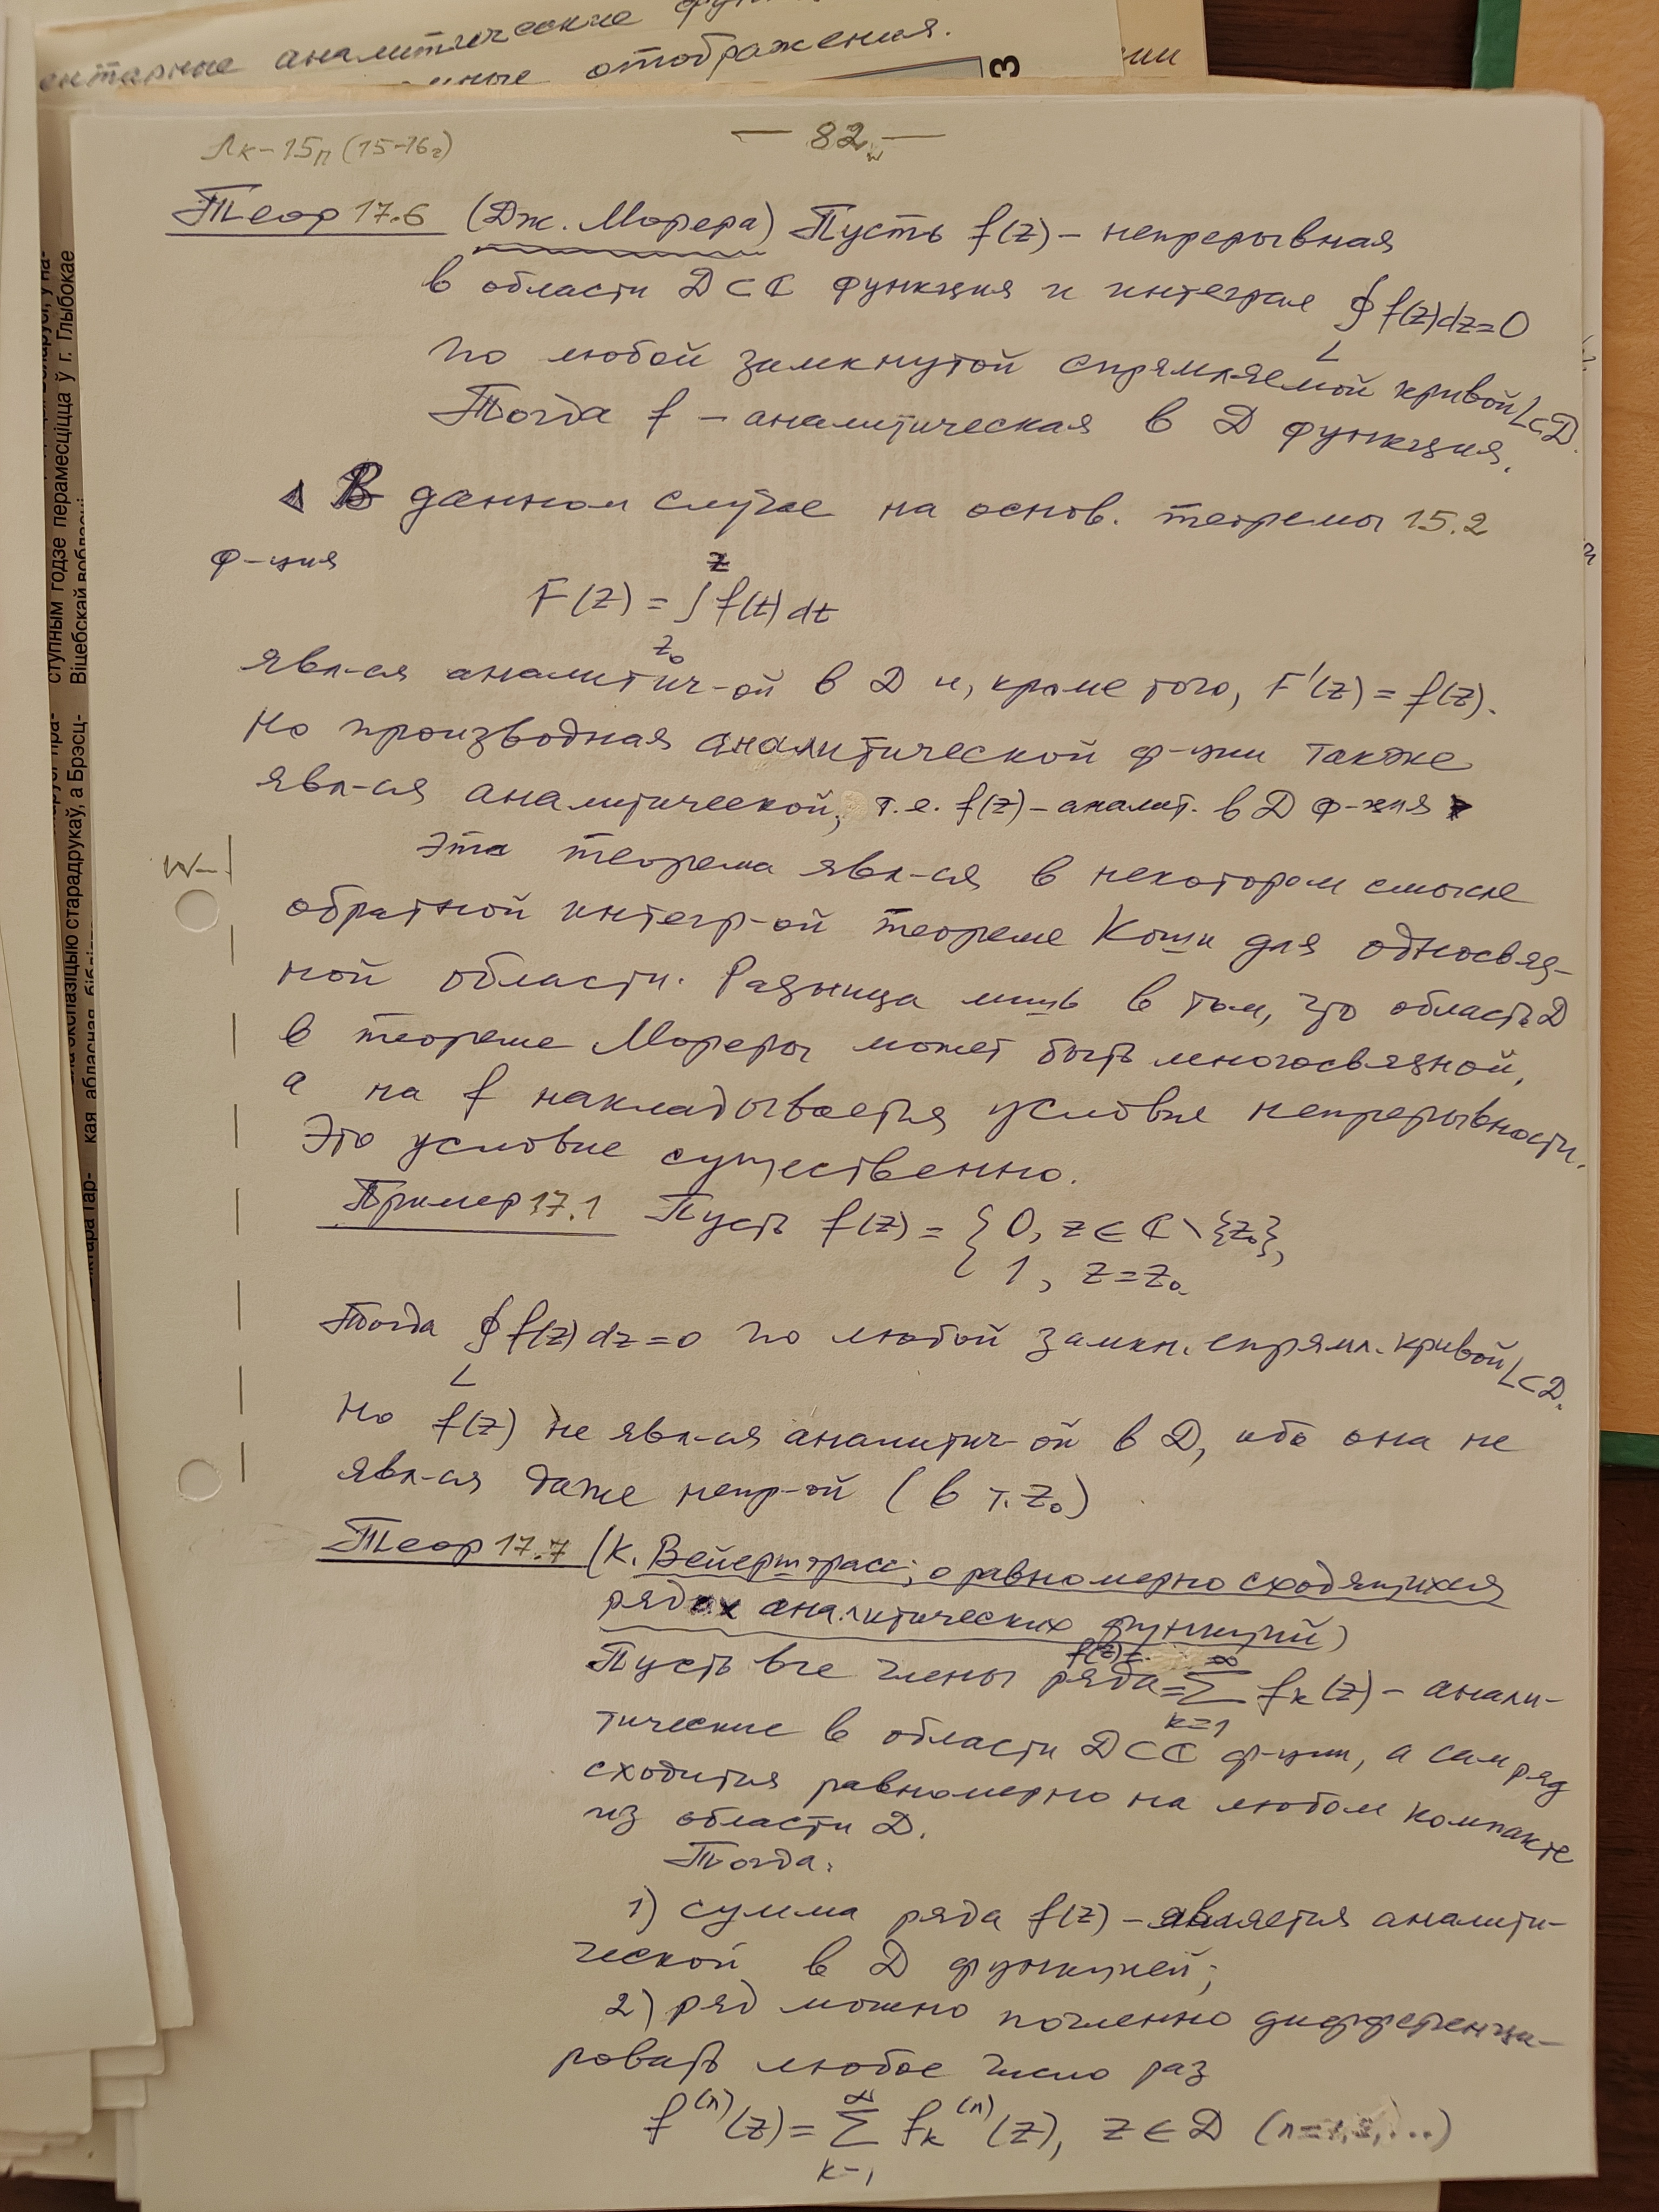 аналитические
отображения.
3
Лк-15п (15-16г)
— 82 —
Теор 17.6 (Дж. Морера) Пусть f(z) – непрерывная
в области D⊂ℂ функция и интеграл ∮_L f(z)dz=0
по любой замкнутой спрямляемой кривой L⊂D.
Тогда f – аналитическая в D функция.
◁ В данном случае на основ. теоремы 15.2
ф-ция
F(z) = ∫_{z₀}^{z} f(t)dt
явл-ся аналитич-ой в D и, кроме того, F'(z) = f(z).
Но производная аналитической ф-ции также
явл-ся аналитической, т.е. f(z) – аналит. в D ф-ция ▶
Эта теорема явл-ся в некотором смысле
обратной интегр-ой теореме Коши для односвяз-
ной области. Разница лишь в том, что область D
в теореме Мореры может быть многосвязной,
а на f накладывается условие непрерывности.
Это условие существенно.
Пример 17.1 Пусть f(z) = { 0, z∈ℂ\{z₀},
1, z=z₀
Тогда ∮_L f(z)dz=0 по любой замкн. спрямл. кривой L⊂D.
Но f(z) не явл-ся аналитич-ой в D, ибо она не
явл-ся даже непр-ой (в т. z₀)
Теор 17.7 (К. Вейерштрасс; о равномерно сходящихся
рядах аналитических функций)
Пусть все члены ряда f(z)= ∑_{k=1}^{∞} f_k(z) – анали-
тические в области D⊂ℂ ф-ции, а сам ряд
сходится равномерно на любом компакте
из области D.
Тогда:
1) сумма ряда f(z) – является аналити-
ческой в D функцией;
2) ряд можно почленно дифференци-
ровать любое число раз
f^{(n)}(z) = ∑_{k=1}^{∞} f_k^{(n)}(z), z∈D (n=1,2,...)
ступным годзе перамесціцца ў г. Глыбокае
Віцебскай вобласці